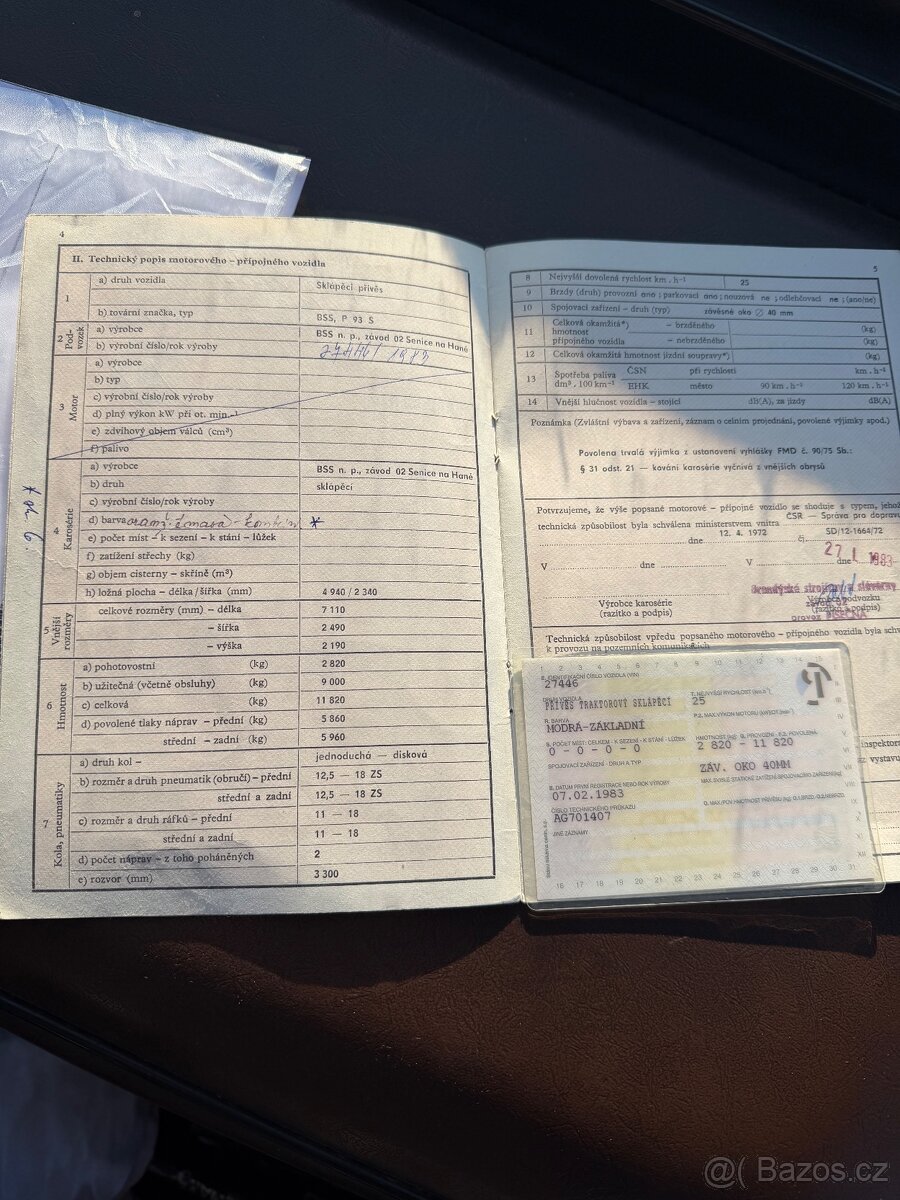 4
II. Technický popis motorového – přípojného vozidla
1
a) druh vozidla
Sklápěcí přívěs
b) tovární značka, typ
BSS, P 93 S
2
Pod-
vozek
a) výrobce
BSS n. p., závod 02 Senice na Hané
b) výrobní číslo/rok výroby
27446/1983
3
Motor
a) výrobce
b) typ
c) výrobní číslo/rok výroby
d) plný výkon kW při ot. min.⁻¹
e) zdvihový objem válců (cm³)
f) palivo
4
Karosérie
a) výrobce
BSS n. p., závod 02 Senice na Hané
b) druh
sklápěcí
c) výrobní číslo/rok výroby
d) barva
*
e) počet míst – k sezení – k stání – lůžek
f) zatížení střechy (kg)
g) objem cisterny – skříně (m³)
h) ložná plocha – délka/šířka (mm)
4 940 / 2 340
5
Vnější
rozměry
celkové rozměry (mm) – délka
7 110
– šířka
2 490
– výška
2 190
6
Hmotnost
a) pohotovostní (kg)
2 820
b) užitečná (včetně obsluhy) (kg)
9 000
c) celková (kg)
11 820
d) povolené tlaky náprav – přední (kg)
5 860
střední – zadní (kg)
5 960
7
Kola, pneumatiky
a) druh kol –
jednoduchá – disková
b) rozměr a druh pneumatik (obručí) – přední
12,5 — 18 ZS
střední a zadní
12,5 — 18 ZS
c) rozměr a druh ráfků – přední
11 — 18
střední a zadní
11 — 18
d) počet náprav – z toho poháněných
2
e) rozvor (mm)
3 300
5
8 Nejvyšší dovolená rychlost km . h⁻¹ 25
9 Brzdy (druh) provozní ano ; parkovací ano ; nouzová ne ; odlehčovací ne ; (ano/ne)
10 Spojovací zařízení – druh (typ) závěsné oko ∅ 40 mm
11
Celková okamžitá*) – brzděného (kg)
hmotnost
přípojného vozidla – nebrzděného (kg)
12 Celková okamžitá hmotnost jízdní soupravy*) (kg)
13
Spotřeba paliva ČSN při rychlosti km . h⁻¹
dm³ . 100 km⁻¹ EHK město 90 km . h⁻¹ 120 km . h⁻¹
14 Vnější hlučnost vozidla – stojící dB(A), za jízdy dB(A)
Poznámka (Zvláštní výbava a zařízení, záznam o celním projednání, povolené výjimky apod.)
Povolena trvalá výjimka z ustanovení vyhlášky FMD č. 90/75 Sb.:
§ 31 odst. 21 — kování karosérie vyčnívá z vnějších obrysů
Potvrzujeme, že výše popsané motorové – přípojné vozidlo se shoduje s typem, jehož
technická způsobilost byla schválena ministerstvem vnitra ČSR — Správa pro dopravu
dne 12. 4. 1972 čj. SD/12-1664/72
V dne V dne 27 I. 1983
Výrobce karosérie
(razítko a podpis)
Výrobce podvozku
(razítko a podpis)
Technická způsobilost vpředu popsaného motorového – přípojného vozidla byla schv
k provozu na pozemních komunikacích
E. IDENTIFIKAČNÍ ČÍSLO VOZIDLA (VIN)
27446
PŘÍVĚS TRAKTOROVÝ SKLÁPĚCÍ
25
R. BARVA
MODRÁ-ZÁKLADNÍ
0 - 0 - 0 - 0
2 820 - 11 820
SPOJOVACÍ ZAŘÍZENÍ - DRUH A TYP
ZÁV. OKO 40MM
B. DATUM PRVNÍ REGISTRACE NEBO ROK VÝROBY
07.02.1983
ČÍSLO TECHNICKÉHO PRŮKAZU
AG701407
JINÉ ZÁZNAMY
16 17 18 19 20 21 22 23 24 25 26 27 28 29 30 31
inspektor
vystavu
@( Bazos.cz